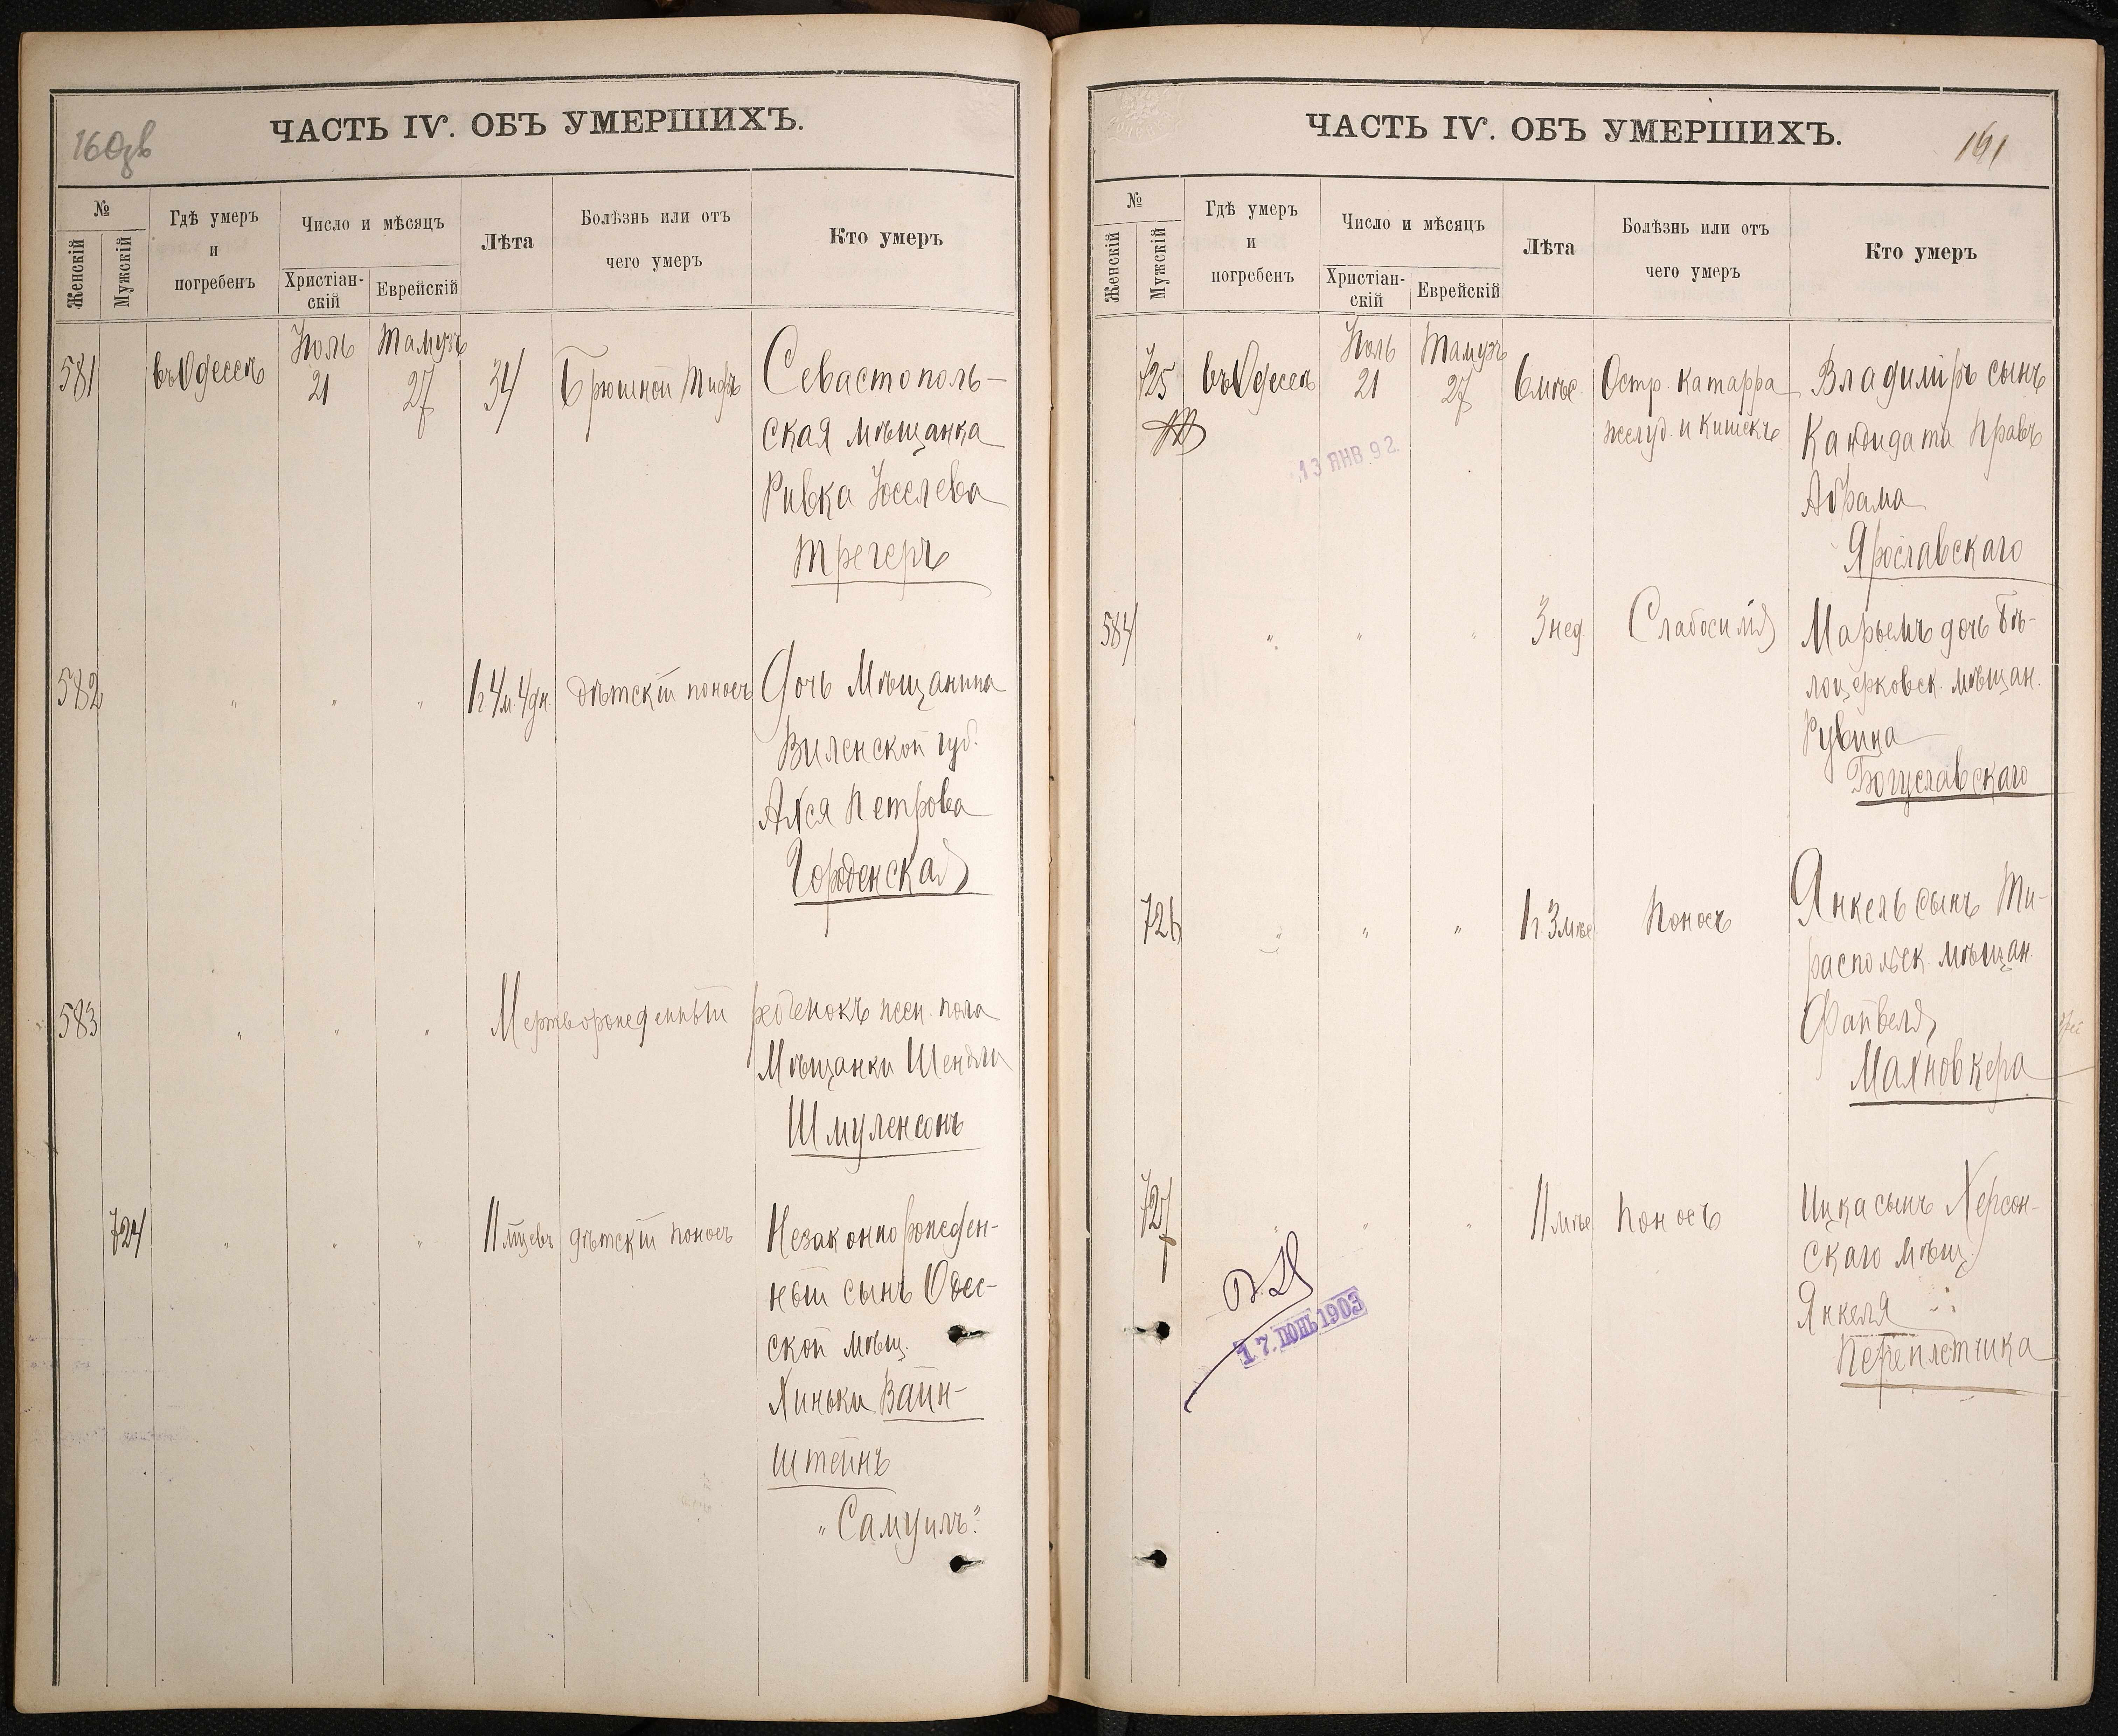 160зв
ЧАСТЬ IV. ОБЪ УМЕРШИХЪ.
№
Женскій
Мужскій
Гдѣ умеръ
и
погребенъ
Число и мѣсяцъ
Христіан-
скій
Еврейскій
Лѣта
Болѣзнь или отъ
чего умеръ
Кто умеръ
Іюль Тамузъ
581 въ Одессѣ 21 27 34 Брюшной тифъ Севастополь-
ская мѣщанка
Ривка Іоселева
Трегеръ
582 " " " 4м. 4дн. дѣтскій поносъ Дочь Мѣщанина
Виленской губ.
Петрова
Городенская
583 " " " Мертворожденный ребенокъ жен. пола
Мѣщанки Шендли
Шмуленсонъ
724 " " " 11 мцевъ дѣтскій поносъ Незаконнорожден-
ный сынъ Одес-
ской мѣщ.
Хиньки Вайн-
штейнъ
"Самуилъ"
161
ЧАСТЬ IV. ОБЪ УМЕРШИХЪ.
№
Женскій
Мужскій
Гдѣ умеръ
и
погребенъ
Число и мѣсяцъ
Христіан-
скій
Еврейскій
Лѣта
Болѣзнь или отъ
чего умеръ
Кто умеръ
Іюль Тамузъ
725 въ Одессѣ 21 27 6 мѣс. Остр. катарра Владиміръ сынъ
желуд. и кишекъ Кандидата Правъ
13 ЯНВ 92
Абрама
Ярославскаго
584 " " " 3 нед. Слабосилія Марьемъ дочь Бѣ-
лоцерковск. мѣщан.
Рувина
Богуславскаго
726 " " " 3 мѣс. Поносъ Янкель сынъ Ти-
распольск. мѣщан.
Файвеля
Махновкера
727 " " " 11 мѣс. Поносъ Ицка сынъ Херсон-
скаго мѣщ.
Янкеля
Переплетчика
17. ІЮНЬ 1903